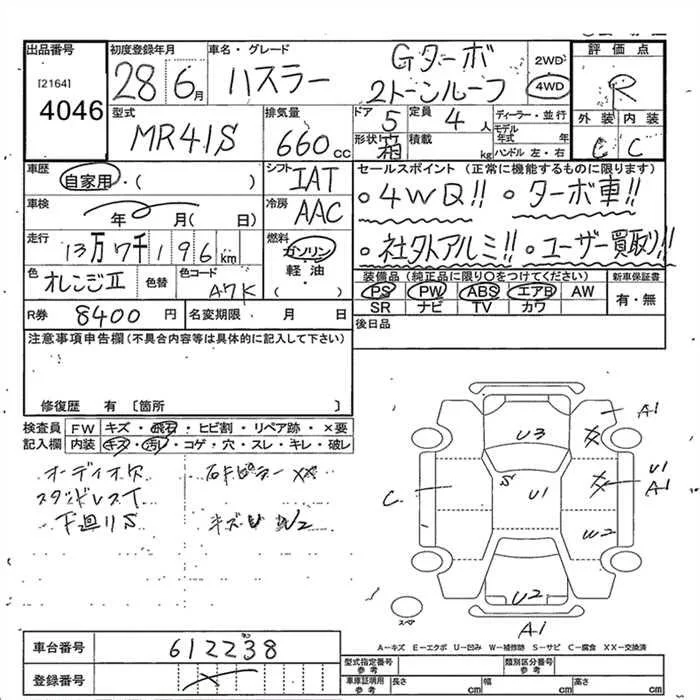 出品番号 初度登録年月 車名・グレード Gターボ 2WD 評価点
[2164] 28 6月 ハスラー 2トーンルーフ 4WD R
4046 型式 排気量 ドア 5 定員 4人 ディーラー・並行 外装 内装
MR41S 660cc 形状 箱 積載 kg モデル年式 年 ハンドル 左・右 C C
車歴 自家用・( ) シフト IAT セールスポイント (正常に機能するものに限ります)
車検 年 月( 日) 冷房 AAC ○4WD!! ○ターボ車!!
走行 13万7千196km 燃料 ガソリン ○社外アルミ!! ○ユーザー買取り!!
色 オレンジⅡ 色替 色コード A7K 軽油 ・( ) 装備品 (純正品に限り○をつけてください) 新車保証書
PS PW ABS エアB AW 有・無
SR ナビ TV カワ
R券 8400円 名変期限 月 日 後日品
注意事項申告欄 (不具合内容等は具体的に記入して下さい)
修復歴 有 [箇所
検査員 FW キズ・飛石・ヒビ割・リペア跡・×要
記入欄 内装 キズ・汚レ・コゲ・穴・スレ・キレ・破レ
オーディオ欠 右Fピラー XX
スタッドレスT
下廻りS キズU W2
A1
U3
S U1 U1
A1
C
W2
U2
A1
スペア
A-キズ E-エクボ U-凹み W-補修跡 S-サビ C-腐食 XX-交換済
車台番号 612238
登録番号
型式指定番号 参考 類別区分番号 参考
車庫証明用 参考 長さ cm 幅 cm 高さ cm